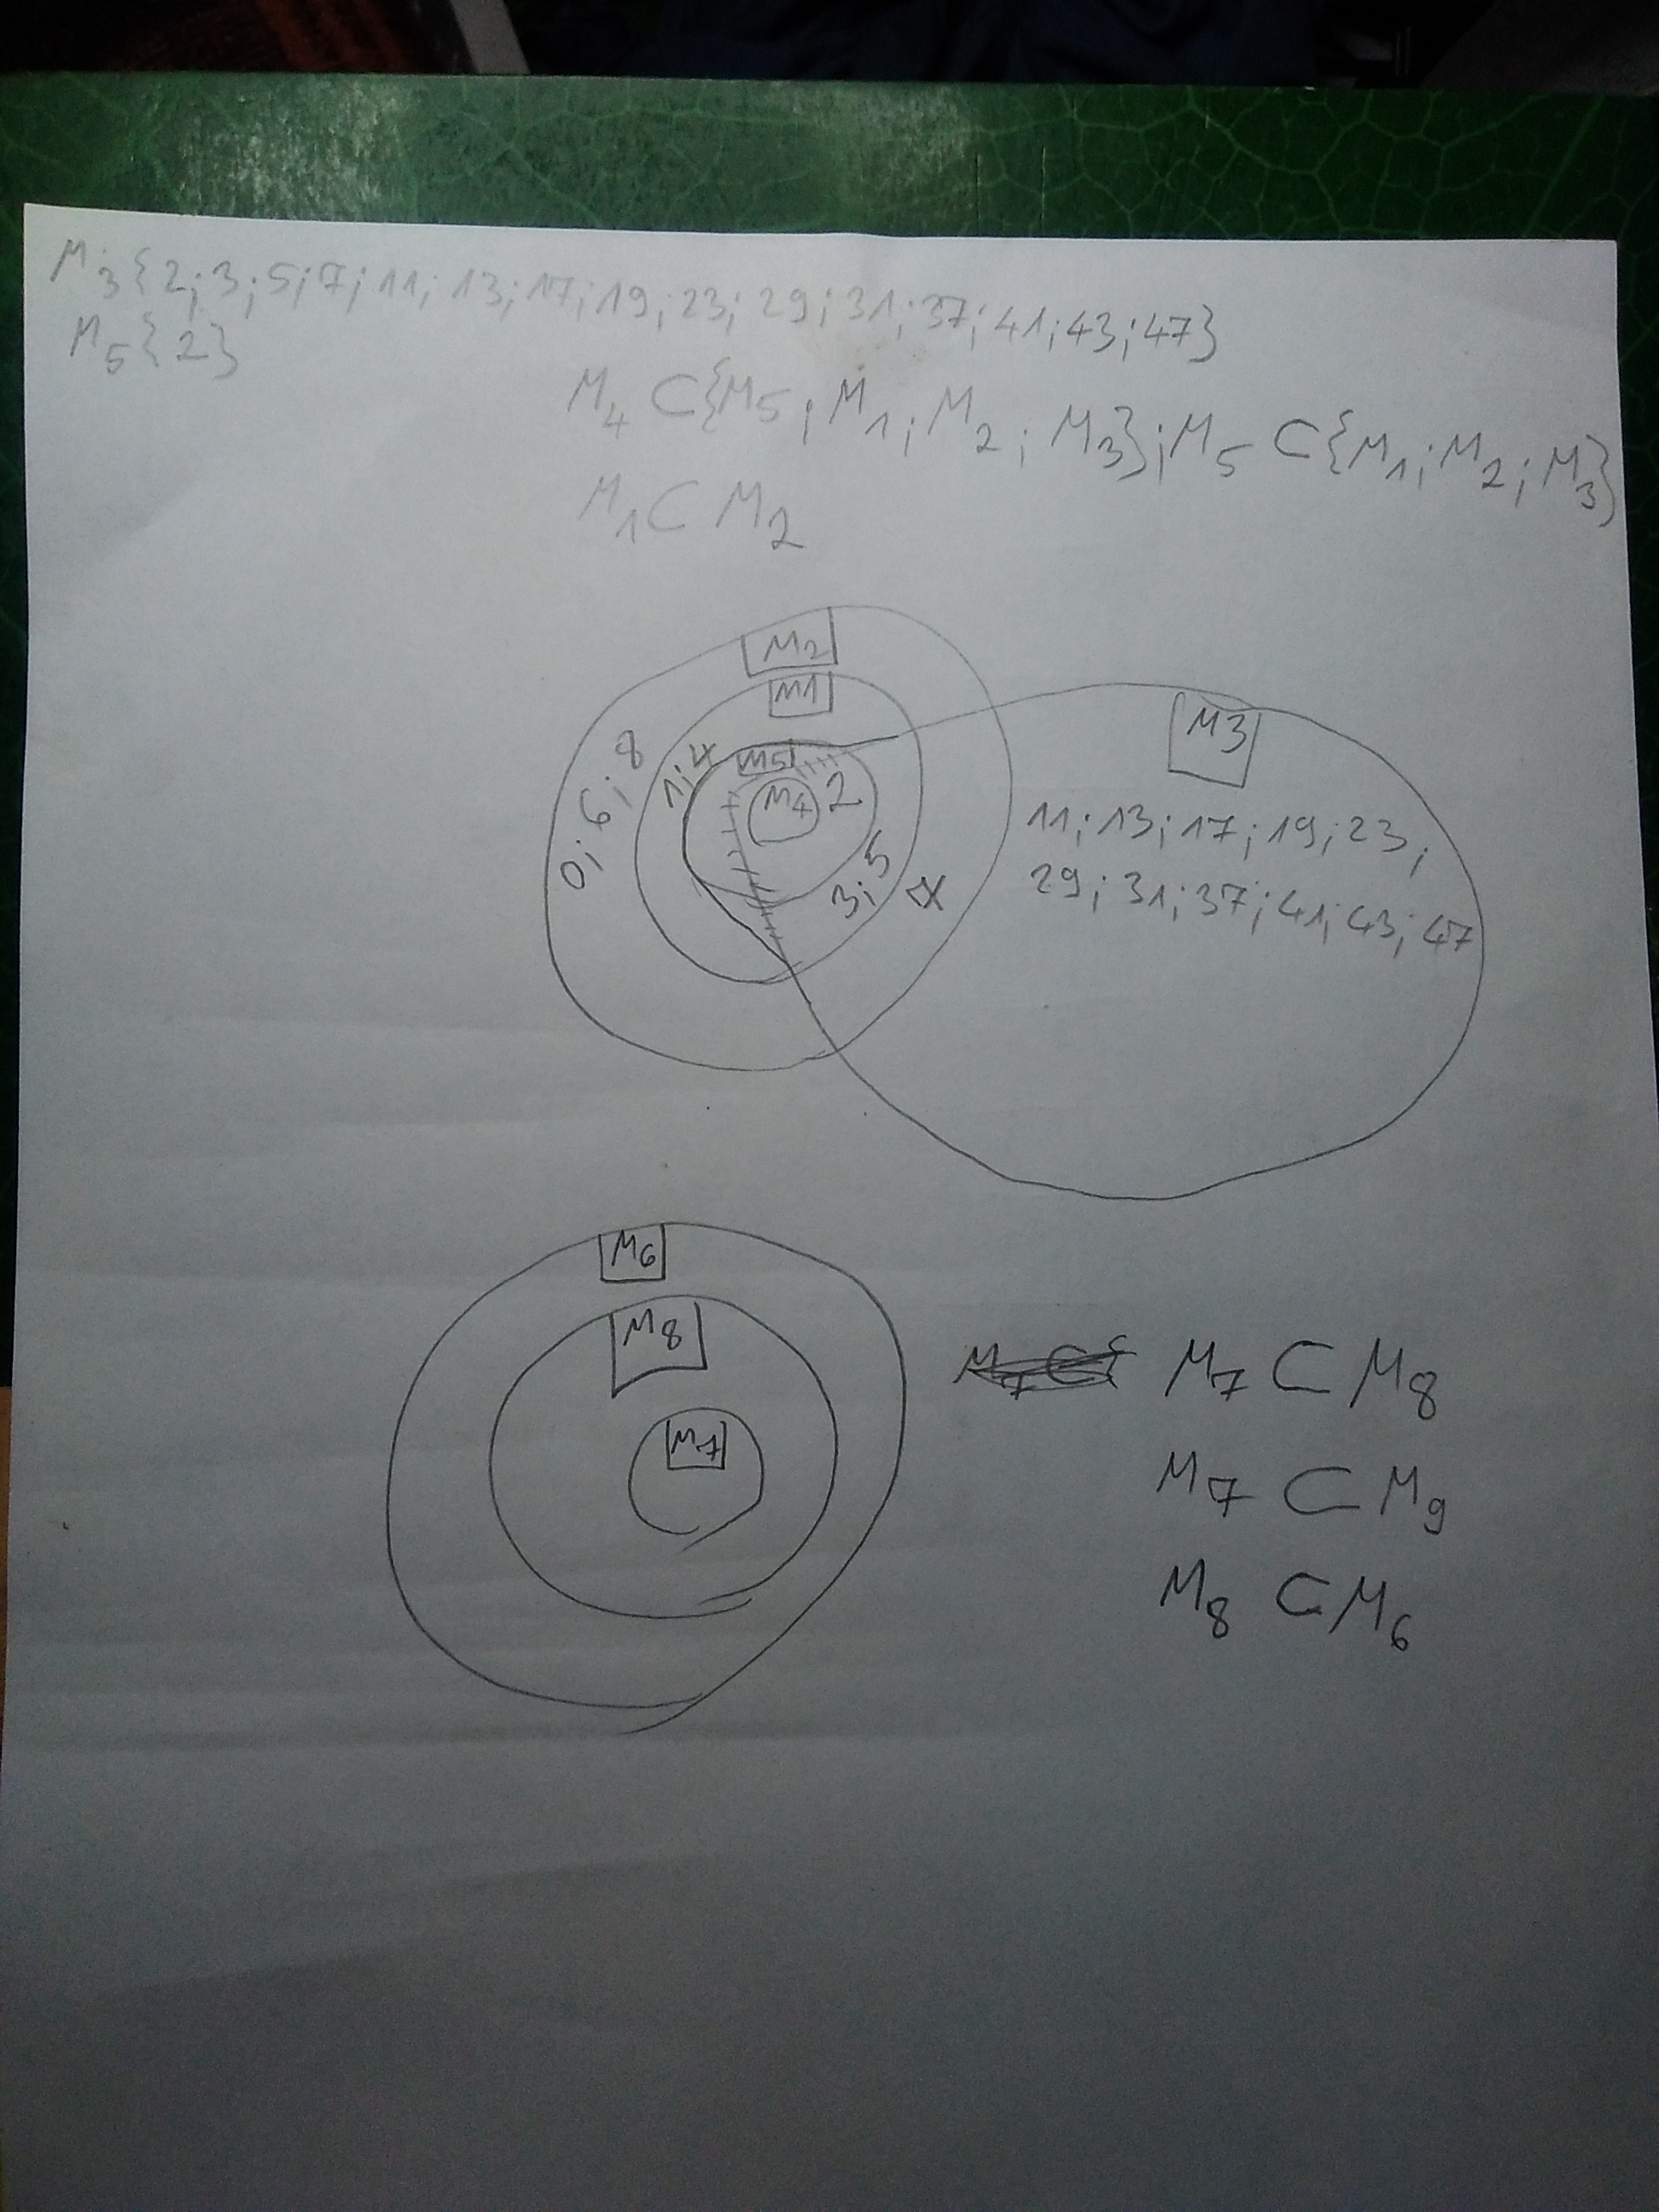 M3{2;3;5;7;11;13;17;19;23;29;31;37;41;43;47}
M5{2}
M4 ⊂{M5;M1;M2;M3};M5 ⊂{M1;M2;M3}
M1⊂ M2
M2
M1
M3
0;6;8
1;4
M5
M4
2
3;5
11;13;17;19;23;
29;31;37;41;43;47
M6
M8
M7
M7 ⊂ M8
M7 ⊂ M9
M8 ⊂ M6